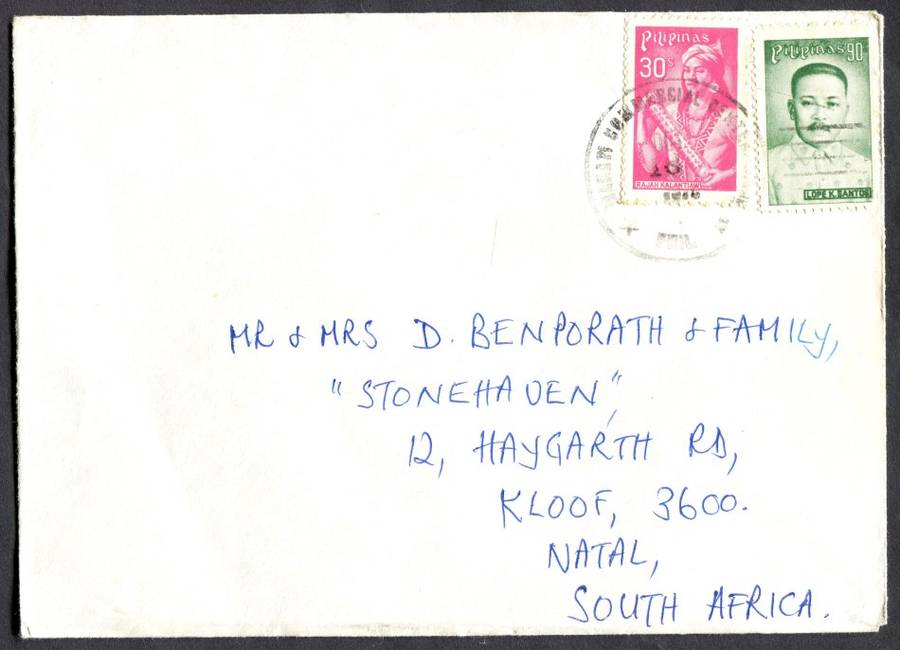 Pilipinas
30s
RAJAH KALANTIAW
Pilipinas 90
LOPE K. SANTOS
COMMERCIAL
18
PHIL
MR & MRS D. BENPORATH & FAMILY,
"STONEHAVEN",
12, HAYGARTH RD,
KLOOF, 3600.
NATAL,
SOUTH AFRICA.